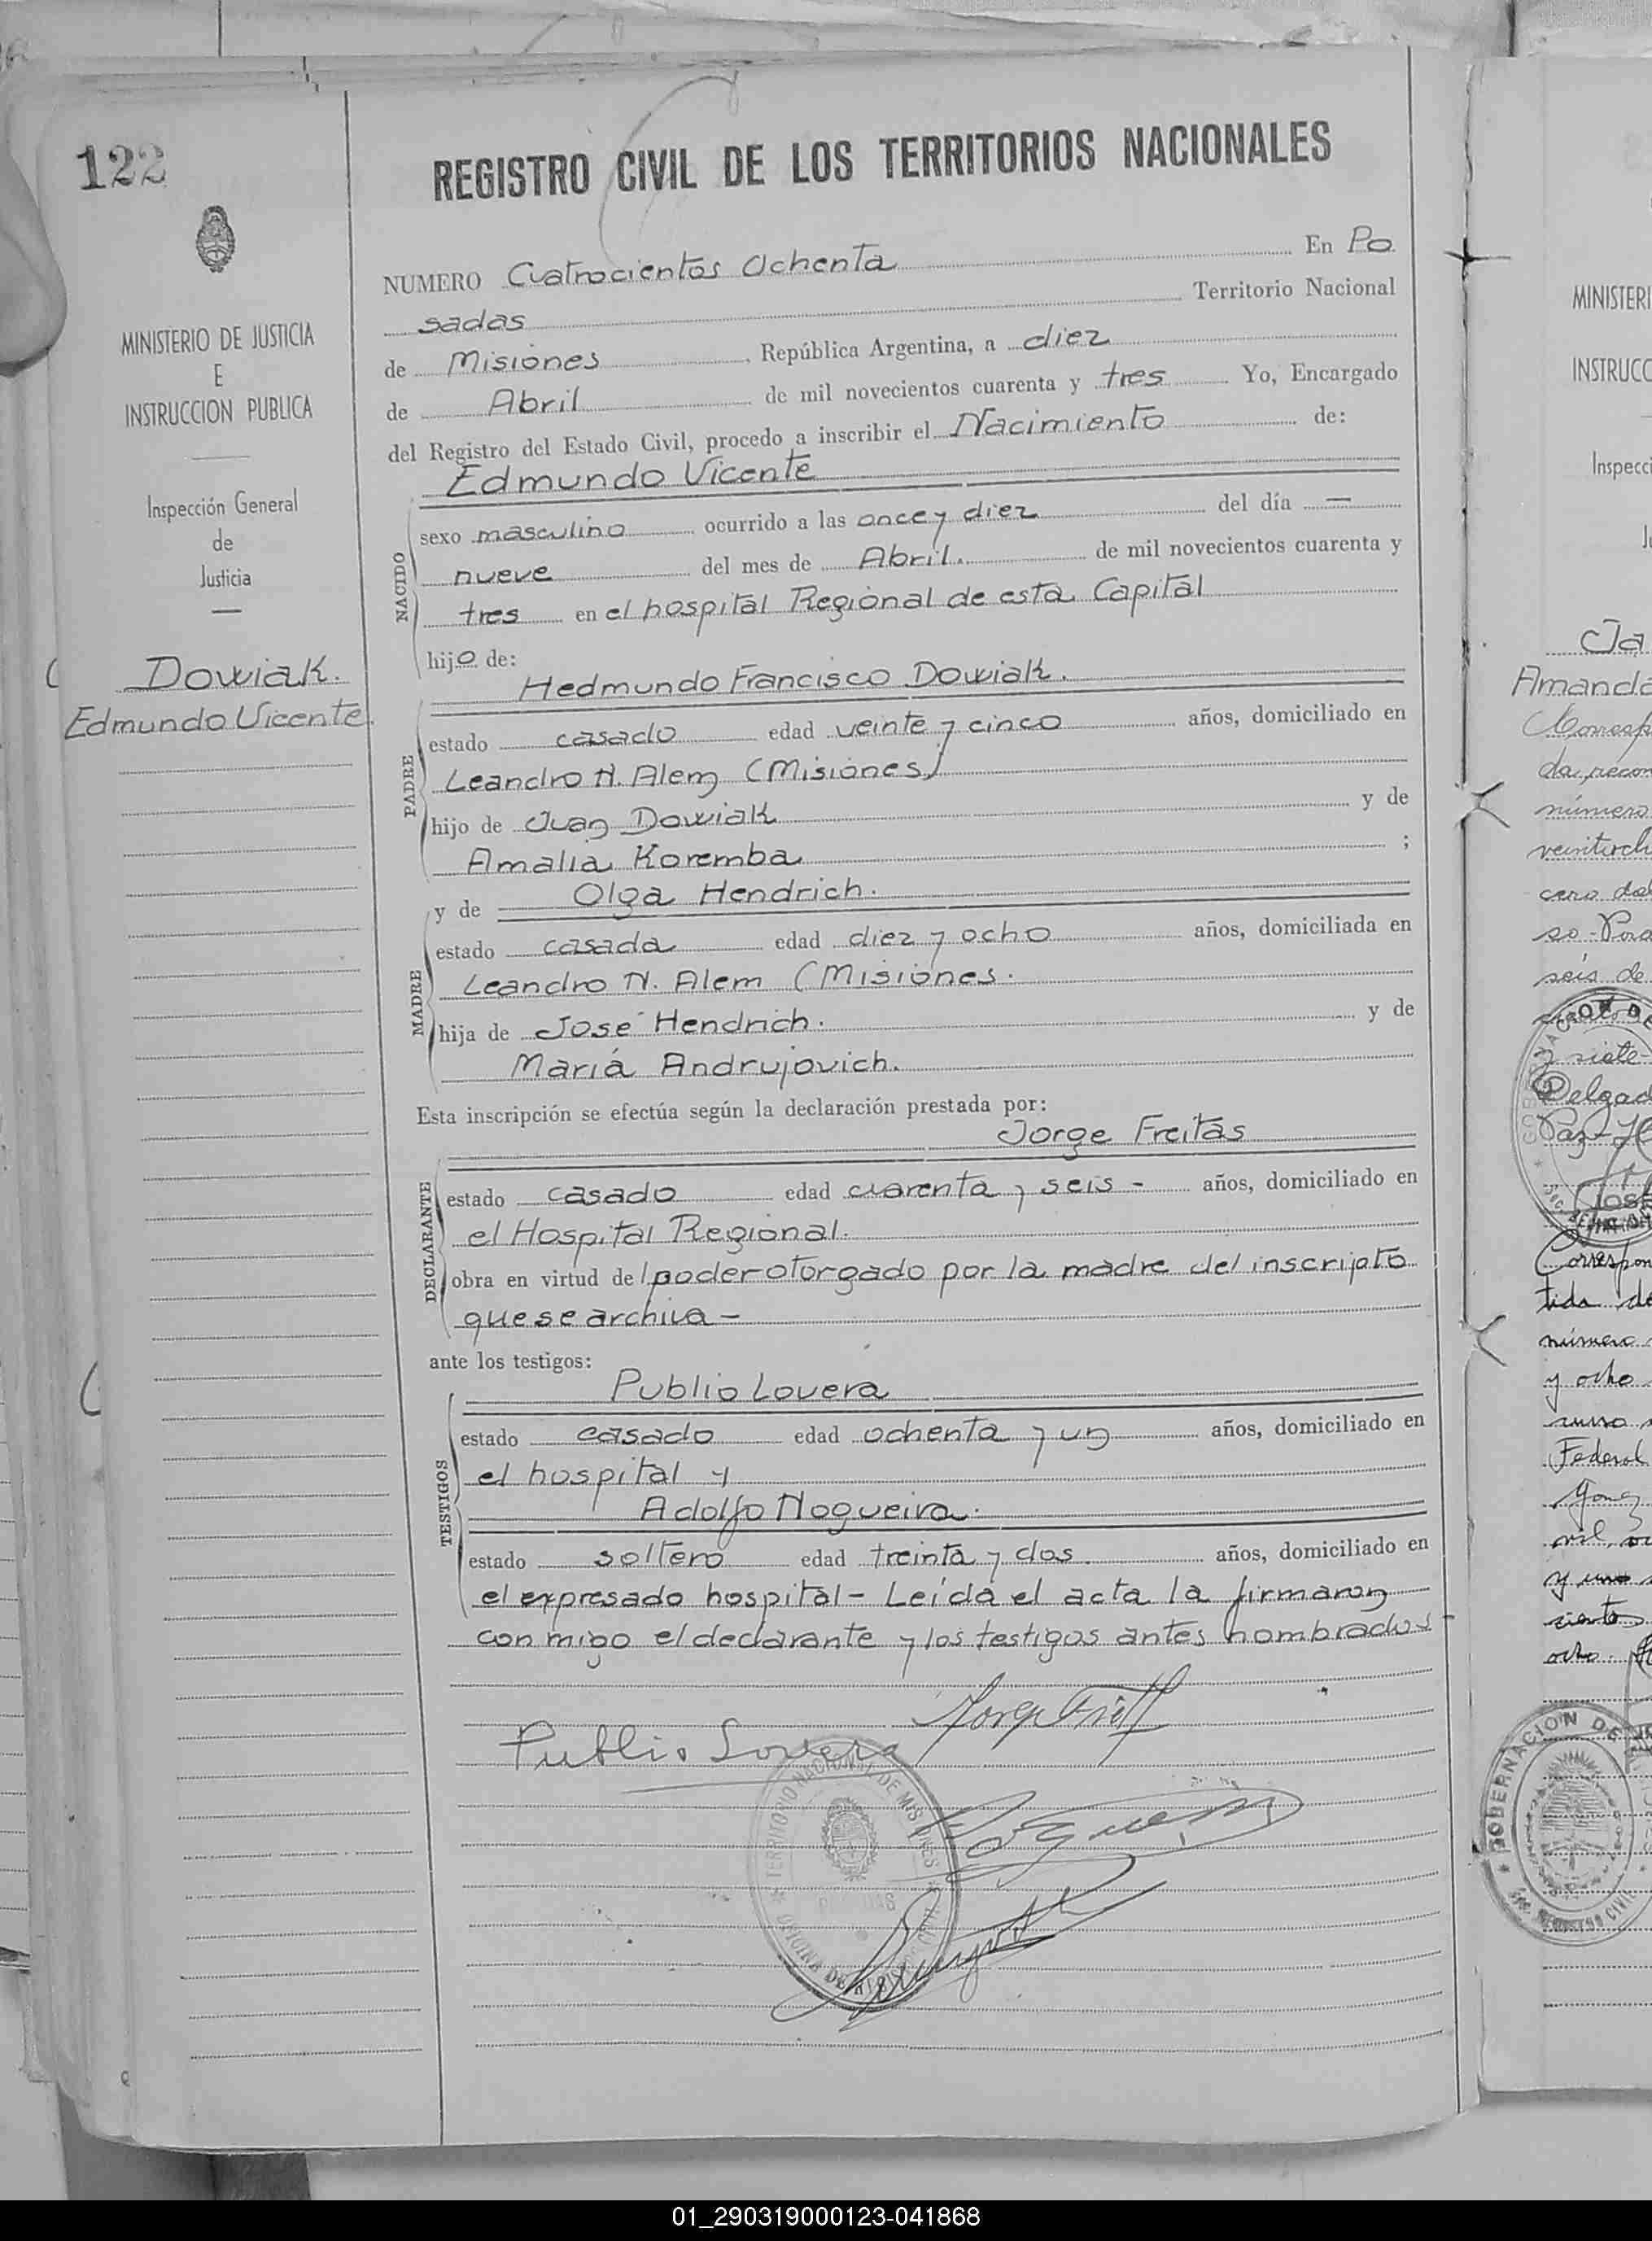 122
REGISTRO CIVIL DE LOS TERRITORIOS NACIONALES
MINISTERIO DE JUSTICIA
E
INSTRUCCION PUBLICA
Inspección General
de
Justicia
Dowiak.
Edmundo Vicente.
NUMERO Cuatrocientos Ochenta En Po
sadas Territorio Nacional
de Misiones, República Argentina, a diez
de Abril de mil novecientos cuarenta y tres Yo, Encargado
del Registro del Estado Civil, procedo a inscribir el Nacimiento de:
Edmundo Vicente
NACIDO
sexo masculino ocurrido a las once y diez del día —
nueve del mes de Abril. de mil novecientos cuarenta y
tres en el hospital Regional de esta Capital
hijo de:
Hedmundo Francisco Dowiak.
PADRE
estado casado edad veinte y cinco años, domiciliado en
Leandro N. Alem (Misiones)
hijo de Juan Dowiak y de
Amalia Koremba ;
y de Olga Hendrich.
MADRE
estado casada edad diez y ocho años, domiciliada en
Leandro N. Alem (Misiones.
hija de José Hendrich. y de
Mariá Andrujovich.
Esta inscripción se efectúa según la declaración prestada por:
Jorge Freitas
DECLARANTE
estado casado edad cuarenta y seis - años, domiciliado en
el Hospital Regional.
obra en virtud del poder otorgado por la madre del inscripto
que se archiva -
ante los testigos:
Publio Lovera
TESTIGOS
estado casado edad ochenta y un años, domiciliado en
el hospital y
Adolfo Nogueira.
estado soltero edad treinta y dos. años, domiciliado en
el expresado hospital - Leída el acta la firmaron
con migo el declarante y los testigos antes nombrados -
Publio Lovera
TERRITORIO NACIONAL DE MISIONES
MINISTERI
INSTRUCC
Inspecci
Ju
Amanda
Corresp
da recon
número
cero del
seis de
y siete
Delgad
Paz
JOSE
Correspon
tida de
número
y ocho
Federal
y uno
ciento
ocho.
GOBERNACION DE
01_290319000123-041868